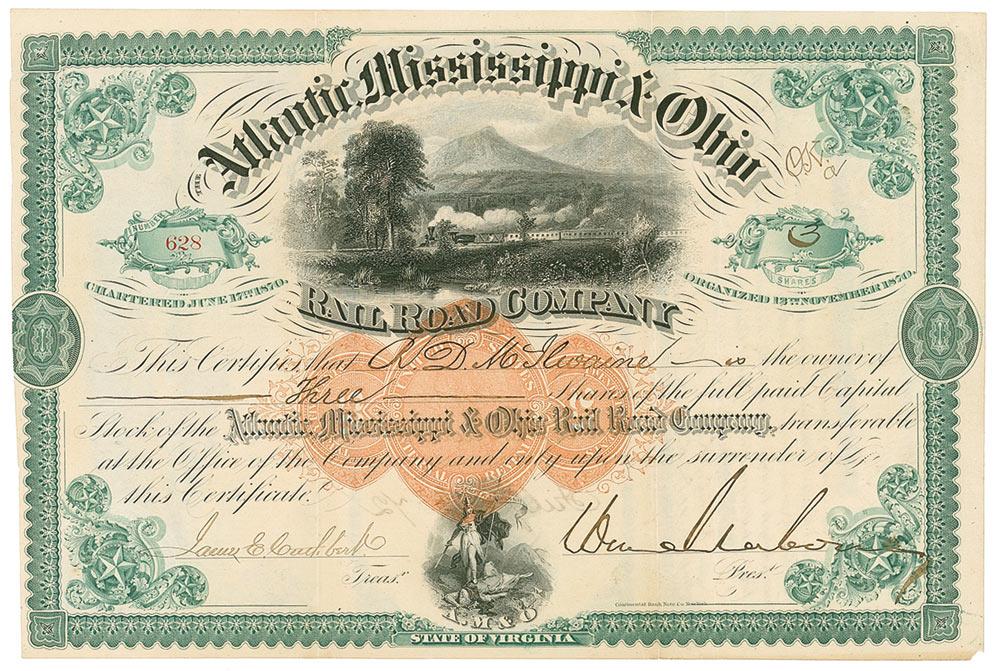 THE
Atlantic, Mississippi & Ohio
O.K.
NUMBER
628
3
SHARES
CHARTERED JUNE 17TH 1870.
ORGANIZED 12TH NOVEMBER 1870.
RAIL ROAD COMPANY
This Certifies, that R D McIlwaine is the owner of
Three Shares of the full paid Capital
Stock of the Atlantic, Mississippi & Ohio Rail Road Company, transferable
at the Office of the Company and only upon the surrender of
this Certificate.
James E Cuthbert
Treasr
Wm Mahone
Prest
Continental Bank Note Co New York
A. M & O
STATE OF VIRGINIA